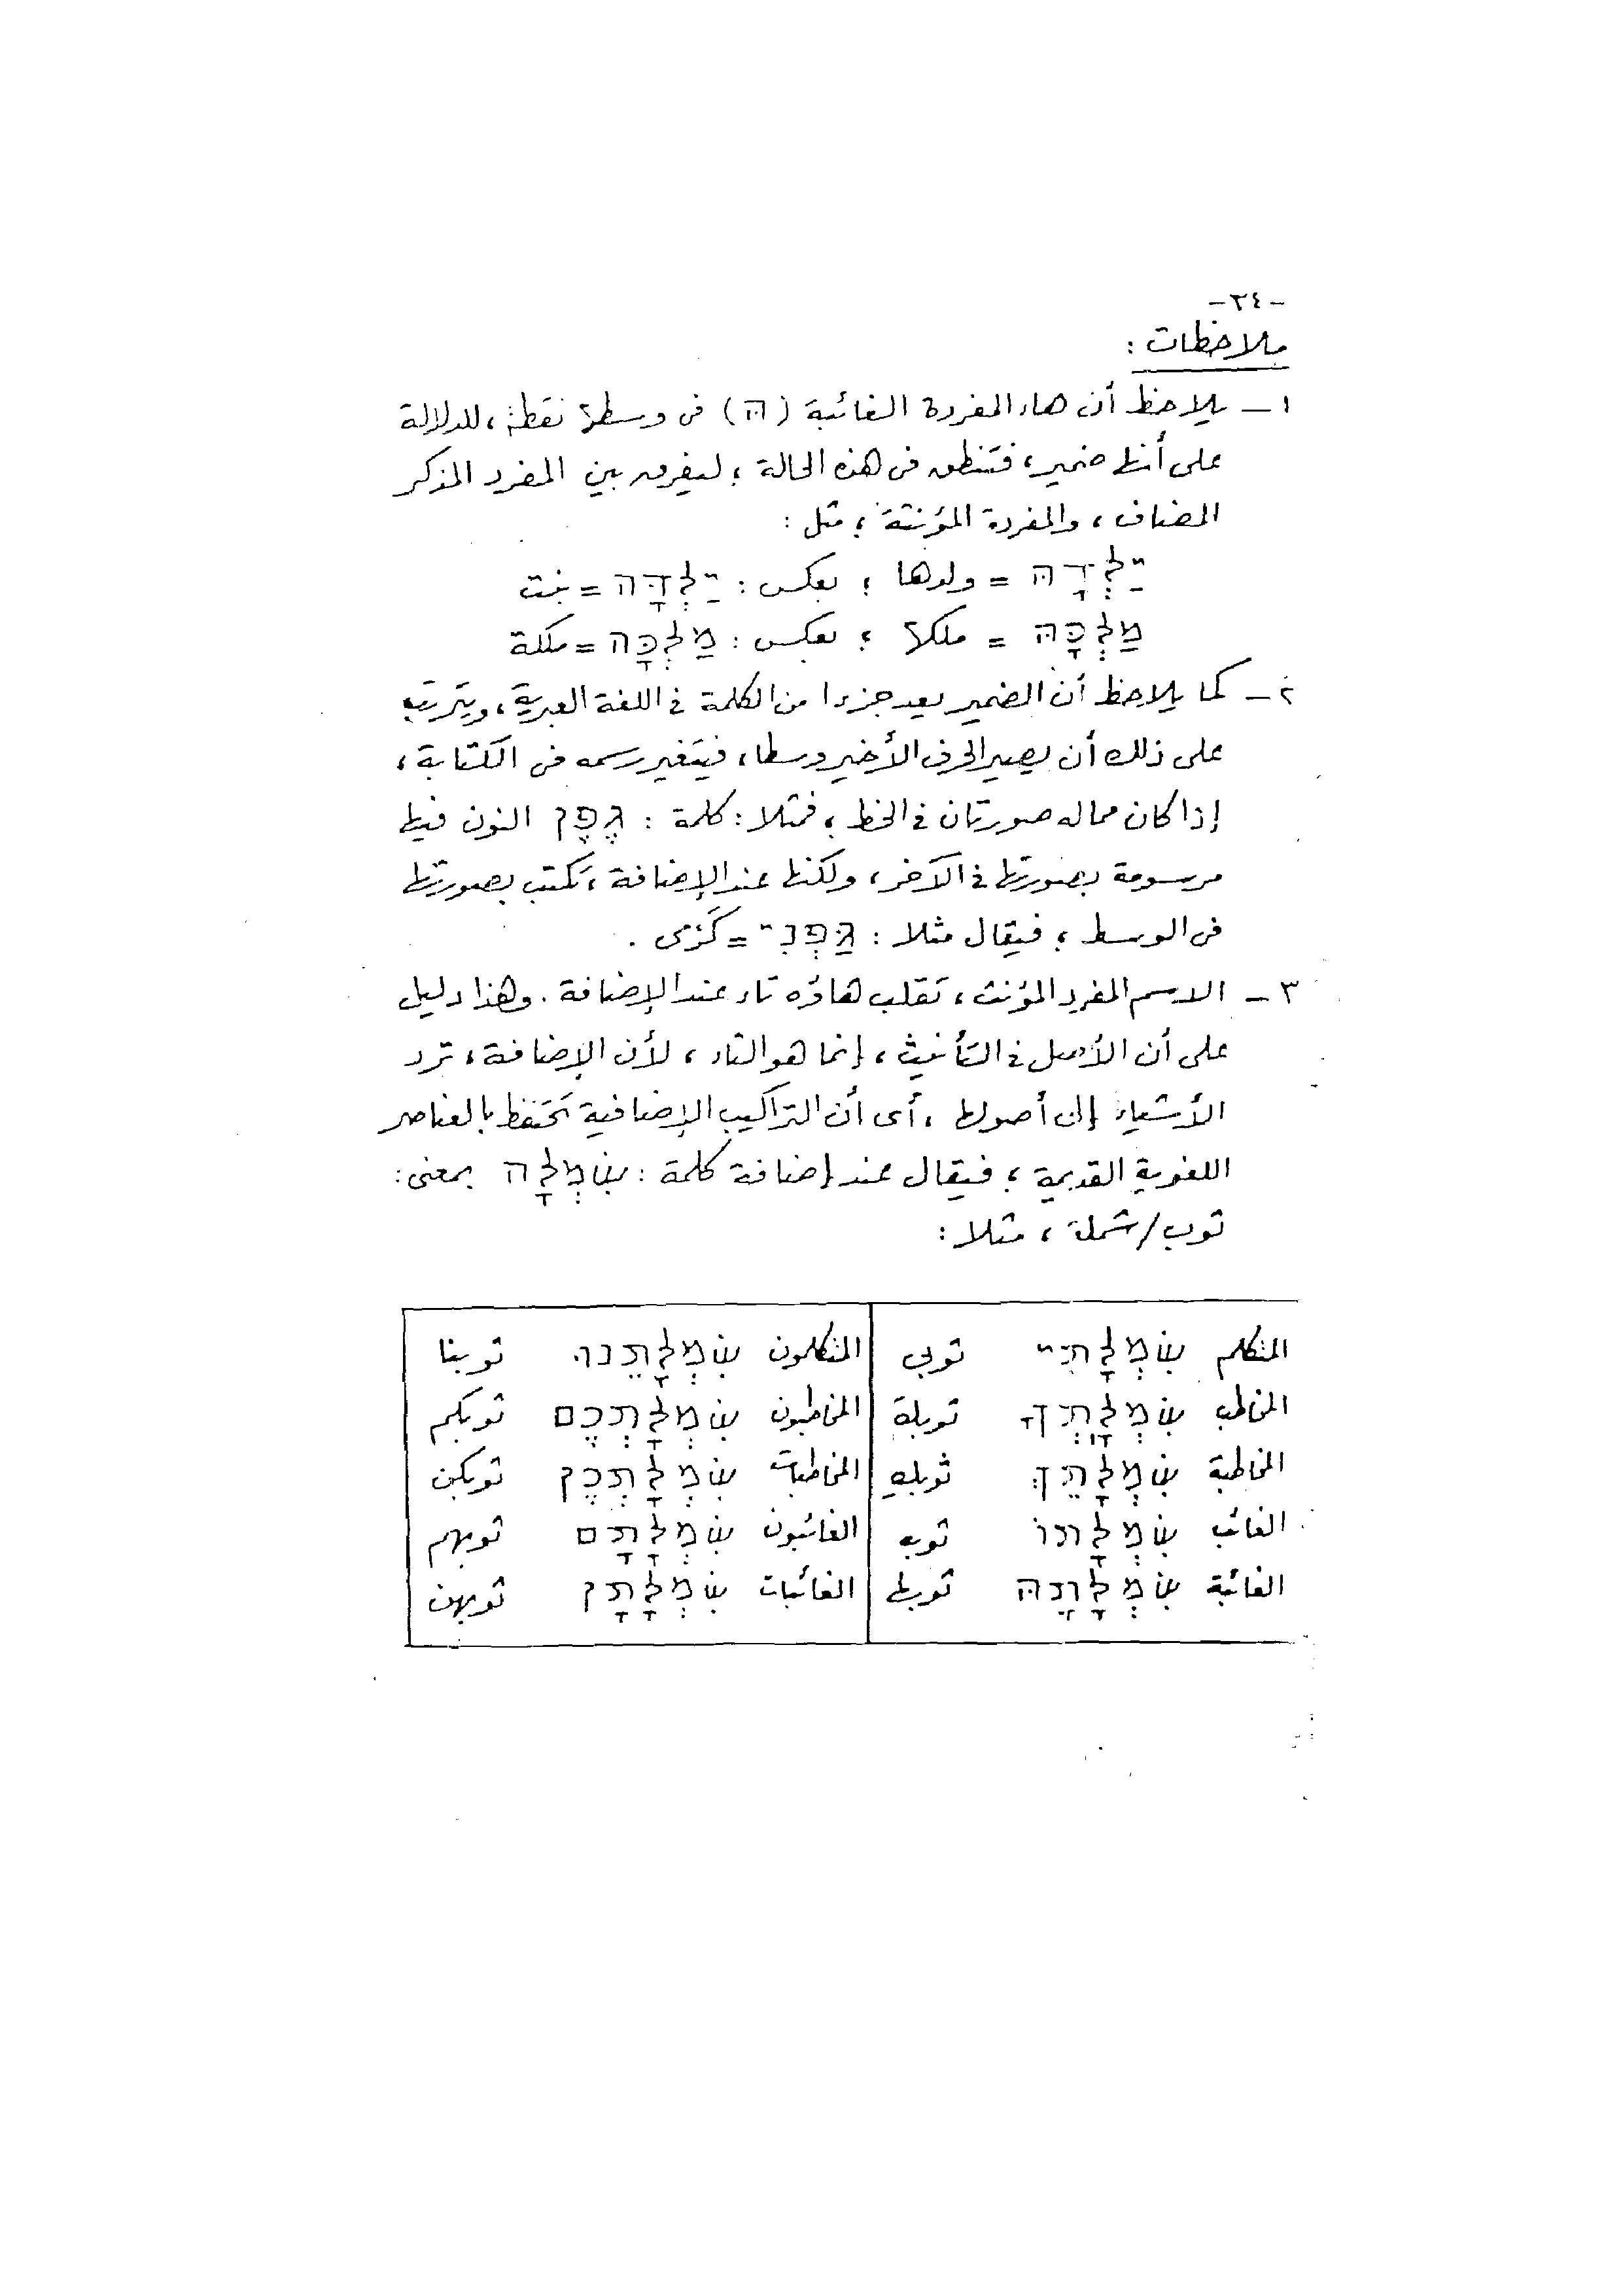 -٣٤-
ملاحظات :
١ - يلاحظ أن هاء المفردة الغائبة (הּ) فى وسطها نقطة ، للدلالة
على أنها ضمير ، فتنطق فى هذه الحالة ؛ ليفرق بين المفرد المذكر
المضاف ، والمفردة المؤنثة ؛ مثل :
יַלְדָהּ = ولدها ؛ بعكس : יַלְדָּה = بنت
מַלְכָּהּ = ملكها ؛ بعكس : מַלְכָּה = ملكة
٢ - كما يلاحظ أن الضمير يعد جزءا من الكلمة فى اللغة العبرية ، ويترتب
على ذلك أن يصير الحرف الأخير وسطا ، فيتغير رسمه فى الكتابة ،
إذا كان مما له صورتان فى الخط ؛ فمثلا : كلمة : גֶפֶן النون فيها
مرسومة بصورتها فى الآخر ، ولكنها عند الإضافة ، تكتب بصورتها
فى الوسط ؛ فيقال مثلا : גַּפְנִי = كَرْمى .
٣ - الاسم المفرد المؤنث ، تقلب هاؤه تاء عند الإضافة . وهذا دليل
على أن الأصل فى التأنيث ، إنما هو التاء ، لأن الإضافة ، ترد
الأشياء إلى أصولها ، أى أن التراكيب الإضافية تحتفظ بالعناصر
اللغوية القديمة ؛ فيقال عند إضافة كلمة : שִׂמְלָה بمعنى :
ثوب / شملة ، مثلا :
المتكلم שִׂמְלָתִי ثوبى المتكلمون שִׂמְלָתֵנוּ ثوبنا
المخاطب שִׂמְלָתְךָ ثوبك المخاطبون שִׂמְלָתְכֶם ثوبكم
المخاطبة שִׂמְלָתֵךְ ثوبكِ المخاطبات שִׂמְלָתְכֶן ثوبكن
الغائب שִׂמְלָתוֹ ثوبه الغائبون שִׂמְלָתָם ثوبهم
الغائبة שִׂמְלָתָהּ ثوبها الغائبات שִׂמְלָתָן ثوبهن